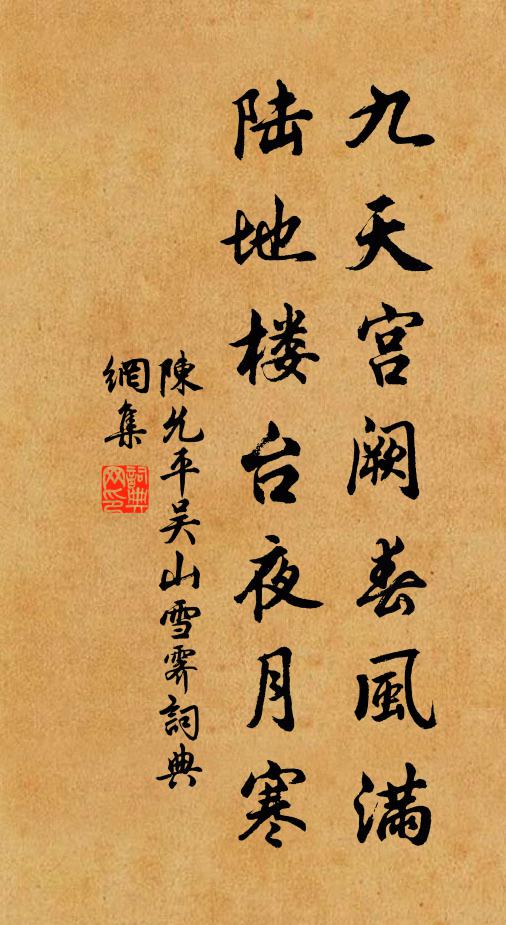 九天宫阙春風满
陆地楼台夜月寒
陳允平吴山雪霽詞典
網集
詞典
网印